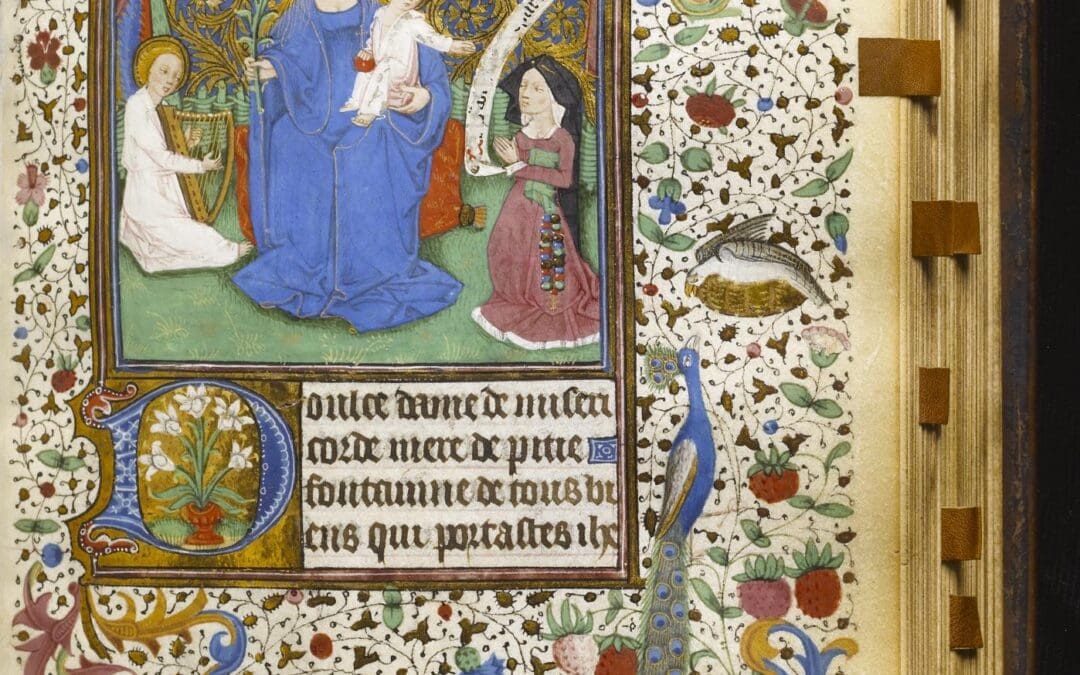 Doulce dame de miseri
corde mere de pitie
fontainne de tous bi
ens qui portastes ihx